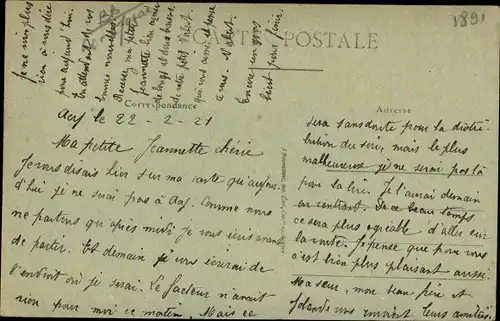 1891
CARTE POSTALE
Correspondance
Adresse
Acy le 22-2-21
Ma petite Jeannette chérie
Je vous disais hier sur ma carte qu'aujour
d'hui je ne serai pas à Acy. Comme nous
ne partons qu'après midi je vous écris avant
de partir. Et demain je vous écrirai de
l'endroit où je serai. Le facteur n'avait
rien pour moi ce matin. Mais ce
sera sans doute pour la distri-
bution du soir, mais le plus
malheureux je ne serai pas là
pour la lire. Je l'aurai demain
en rentrant. De ce beau temps
ce sera plus agréable d'aller sur
la route. Je pense que pour vous
c'est bien plus plaisant aussi.
Ma sœur, mon beau frère et
Yolande vous envoient leurs amitiés.
Je ne vois plus
rien à vous dire
pour aujourd'hui.
En attendant de vos
bonnes nouvelles
Recevez ma petite
Jeannette bien aimée
de votre petit
qui vous aime et pense
à vous.
Encore un gros